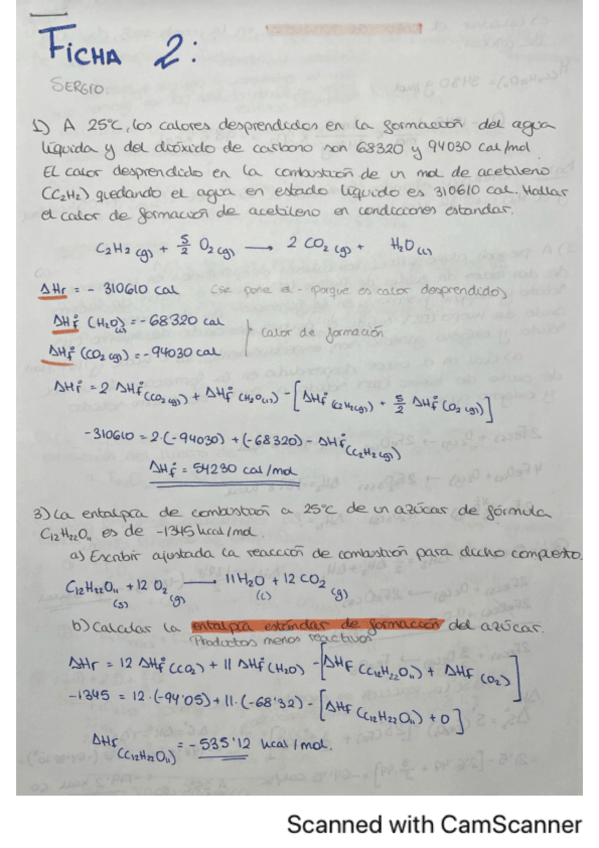 FICHA 2:
SERGIO
1) A 25°C, los calores desprendidos en la formación del agua
líquida y del dióxido de carbono son 68320 y 94030 cal/mol
EL calor desprendido en la combustión de un mol de acetileno
(C₂H₂) quedando el agua en estado líquido es 310610 cal. Hallar
el calor de formación de acetileno en condiciones estandar.
C₂H₂ (g) + 5/2 O₂ (g) → 2 CO₂ (g) + H₂O (l)
ΔHr = - 310610 cal (se pone el - porque es calor desprendido)
ΔHf° (H₂O)(l) = -68320 cal
calor de formación
ΔHf° (CO₂ (g)) = -94030 cal
ΔHr° = 2 ΔHf° (CO₂ (g)) + ΔHf° (H₂O (l)) - [ΔHf° (C₂H₂(g)) + 5/2 ΔHf° (O₂ (g))]
-310610 = 2·(-94030) + (-68320) - ΔHf° (C₂H₂ (g))
ΔHf° = 54230 cal/mol
3) La entalpía de combustión a 25°C de un azúcar de fórmula
C₁₂H₂₂O₁₁ es de -1345 kcal/mol.
a) Escribir ajustada la reacción de combustión para dicho completo.
C₁₂H₂₂O₁₁ (s) + 12 O₂ (g) → 11 H₂O (l) + 12 CO₂ (g)
b) Calcular la entalpía estándar de formación del azúcar.
Productos menos reactivos
ΔHr = 12 ΔHf (CO₂) + 11 ΔHf (H₂O) - [ΔHf (C₁₂H₂₂O₁₁) + ΔHf (O₂)]
-1345 = 12·(-94'05) + 11·(-68'32) - [ΔHf (C₁₂H₂₂O₁₁) + 0]
ΔHf (C₁₂H₂₂O₁₁) = -535'12 kcal/mol.
Scanned with CamScanner